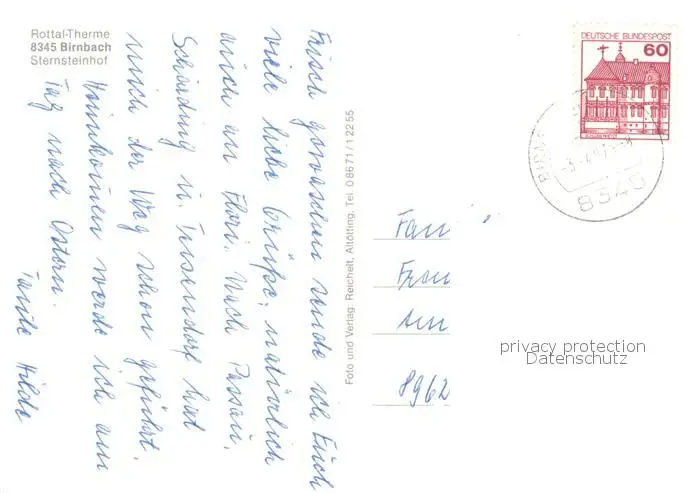 Rottal-Therme
8345 Birnbach
Sternsteinhof
Frisch gewaschen sende ich Euch
viele liebe Grüße, natürlich
auch an Flori. Nach Passau,
Schärding u. Triftern hat
mich der Weg schon geführt.
Heimkommen werde ich am
Tag nach Ostern.
Tante Hilde
Foto und Verlag Reichelt, Altötting, Tel. 08671/12255
DEUTSCHE BUNDESPOST
60
8340
Fam
Fran
Am
8962
privacy protection
Datenschutz